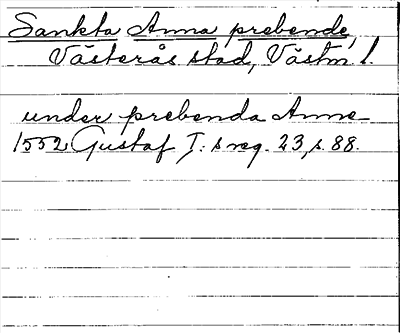 Sankta Anna prebende,
Västerås stad, Västm l.
under prebenda Anne
1552 Gustaf I:s reg. 23, s. 88.